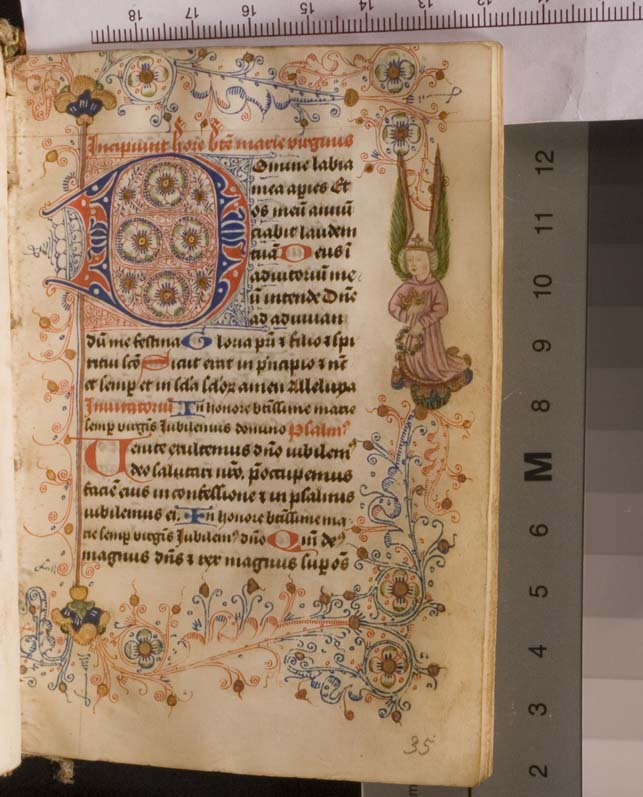 18 17 16 15 14 13 12 11
Incipiunt hore bte marie virginis
Domine labia
mea apies Et
os meū annū
ciabit laudem
tuā Deus ī
adiutoriū me
ū intende Dn̄e
ad adiuuan
dū me festina Gloria pr̄i ⁊ filio ⁊ spi
ritui sc̄o Sicut erat in p̄ncipio ⁊ nc̄
et semp et in sc̄la sc̄lor amen Allelupa
Inuitatoriū In honore btissime marie
semp virgīs Iubilemus domino Psalmꝰ
Uenite exultemus dn̄o iubilemꝰ
deo salutari nr̄o. p̄occupemus
faciē eius in confessione ⁊ in psalmis
iubilemus ei. In honore btissime ma
rie semp virgīs Iubilemꝰ dn̄o Qm̄ deꝰ
magnus dn̄s ⁊ rex magnus sup oēs
35
12
11
10
9
8
M
6
5
4
3
2